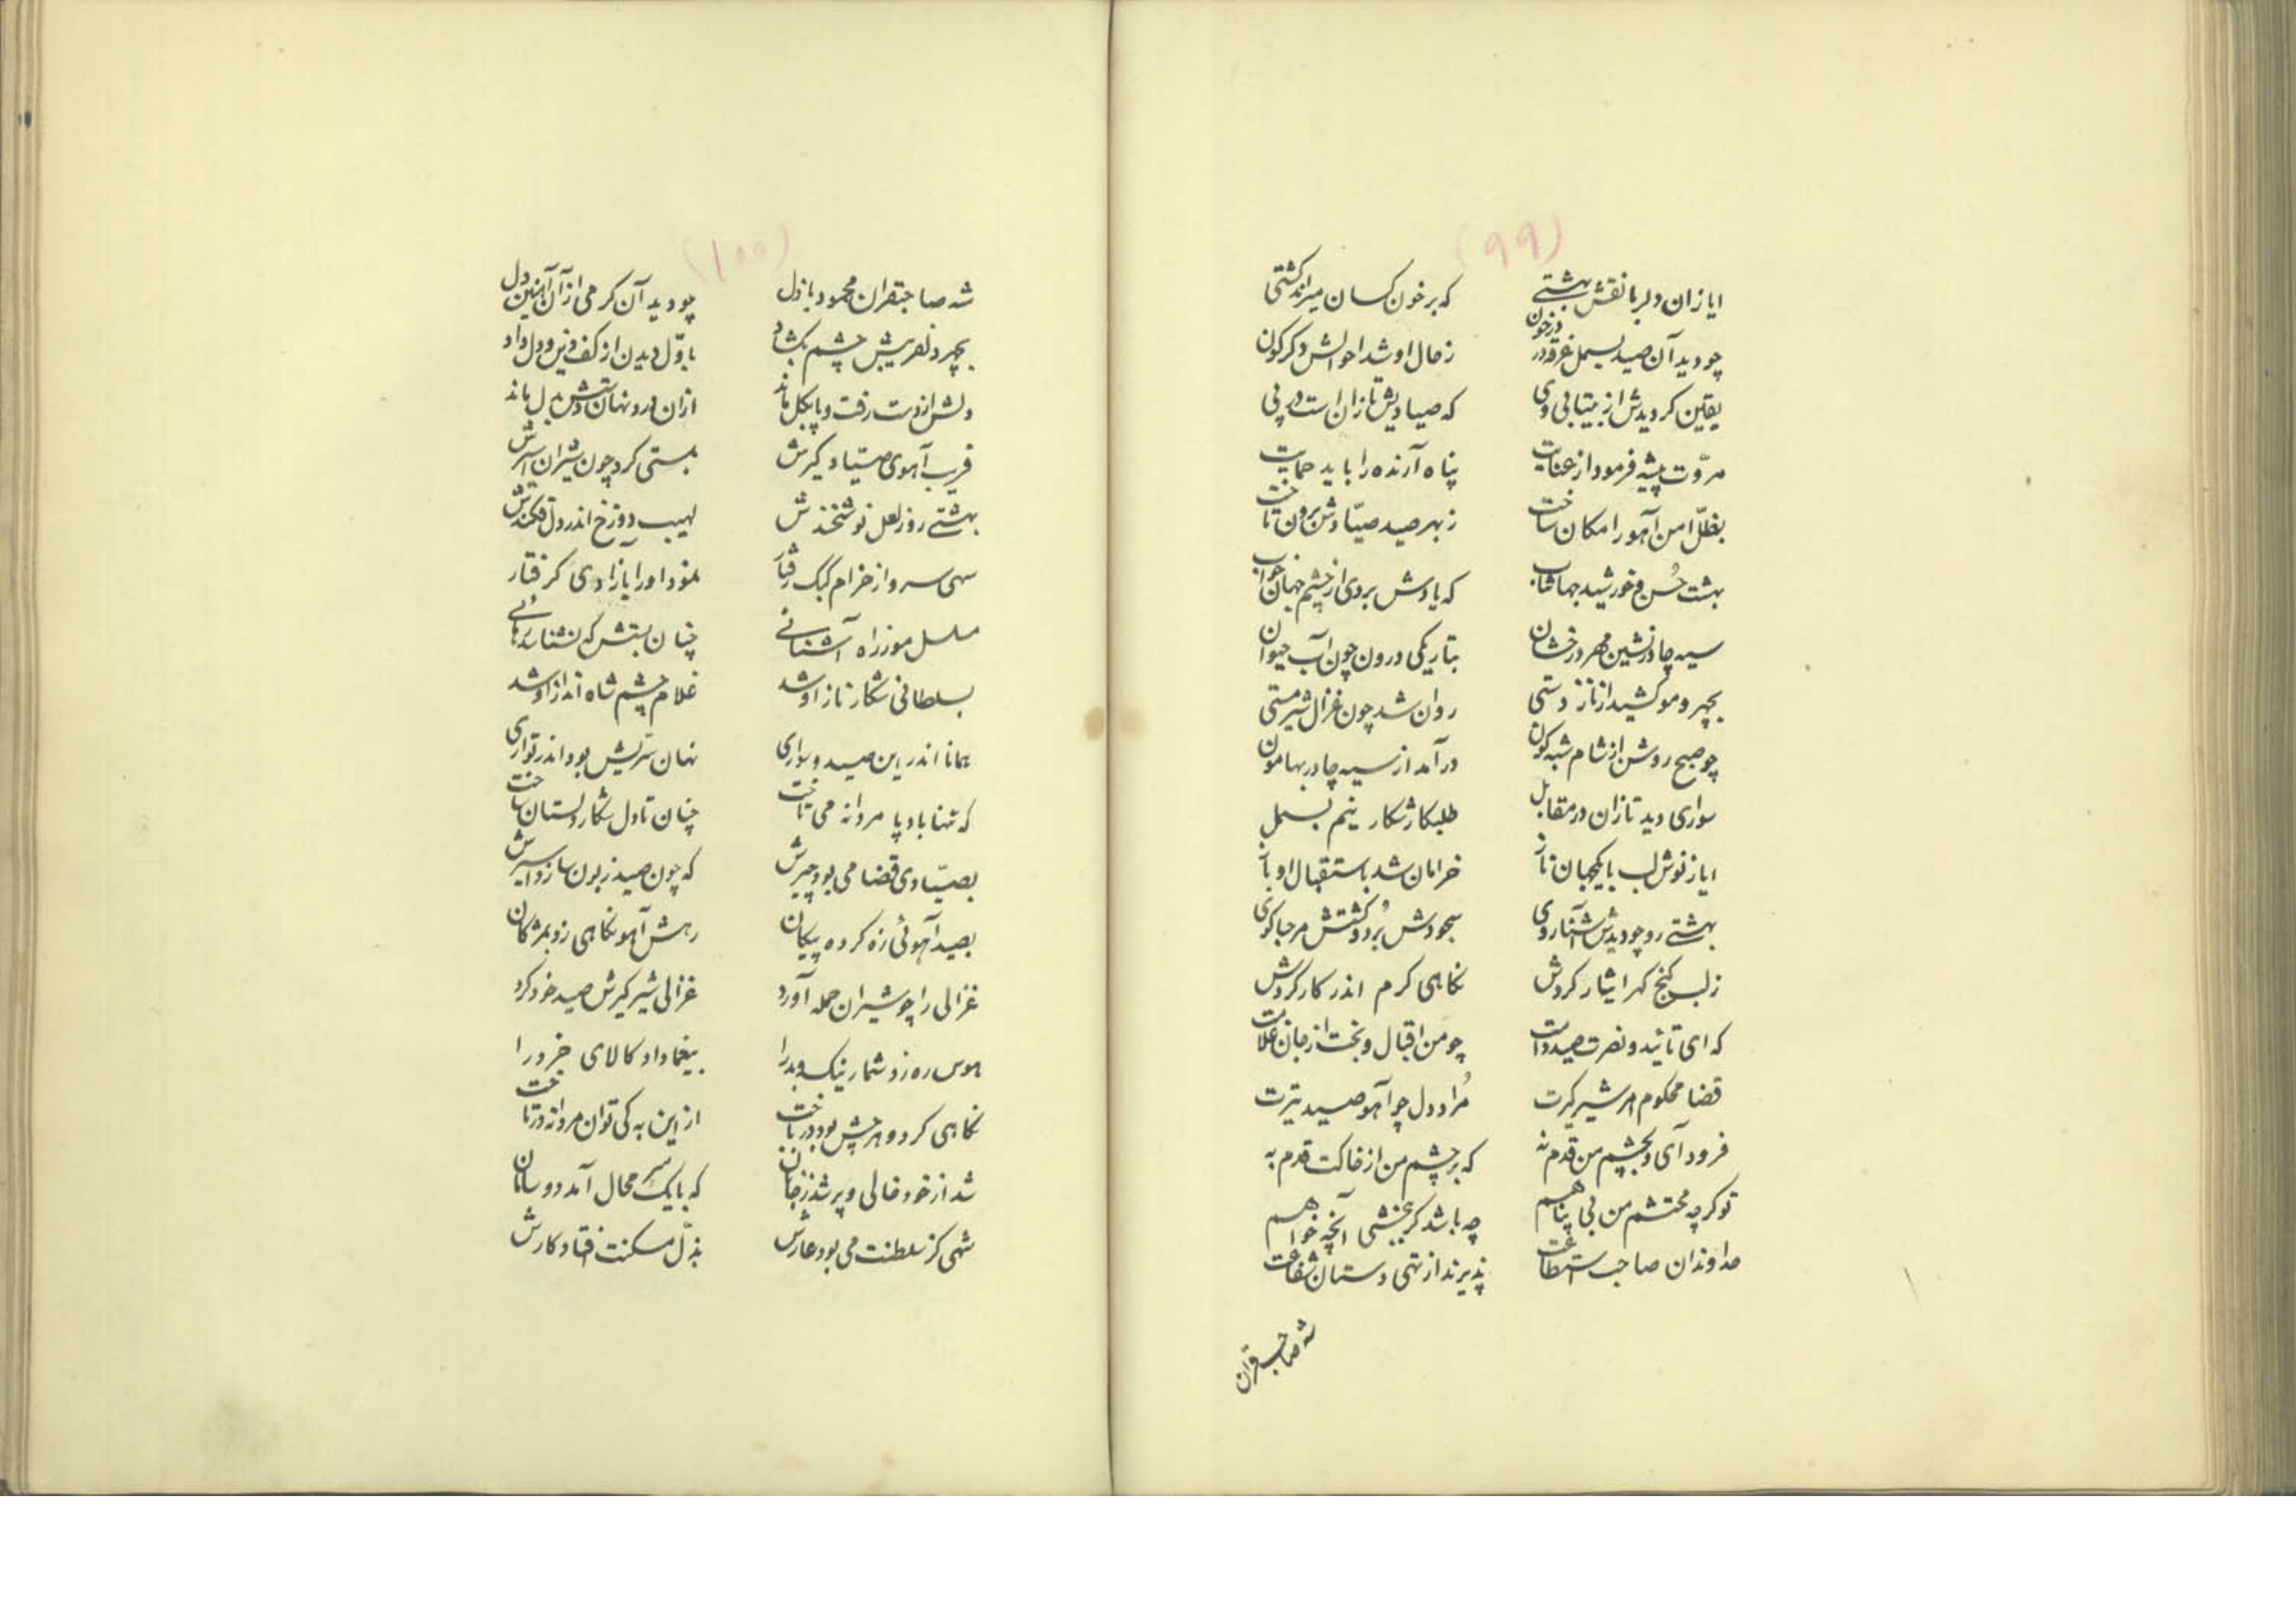 (99)
ایاز ان دلربا نقش بهشتی که بر خون کسان میراند کشتی
چو دید آن صید بسمل غرقه در خون ز حال او شد احوالش دگرگون
یقین گردیدش از بیتابی وی که صیادیش تازان است در پی
مروّت پیشه فرمود از عنایت پناه آرنده را باید حمایت
بظلّ امن آهو را مکان ساخت ز بهر صید صیّادش برون تاخت
بهشت حُسن و خورشید جهانتاب که یادش بردی از چشم جهان خواب
سیه چادر نشین مهر درخشان بتاریکی درون چون آب حیوان
بچهر و مو کشید از ناز دستی روان شد چون غزال شیر مستی
چو صبح روشن از شام شبه کون در آمد از سیه چادر بهامون
سواری دید تازان در مقابل طلبکار شکار نیم بسمل
ایاز نوش لب با یکجهان ناز خرامان شد باستقبال او باز
بهشتی رو چو دیدش آشنا روی سجودش بُرد و گشتش مرحبا گوی
ز لب گنج گهر ایثار کردش نگاهی گرم اندر کار کردش
که ای تائید و نصرت صید دامت چو من اقبال و بخت از جان غلامت
قضا محکوم امر شیر گیرت مُراد دل چو آهو صید تیرت
فرود آی و بچشم من قدم نه که بر چشم من از خاکت قدم به
تو گرچه محتشم من بی پناهم چه باشد گر ببخشی آنچه خواهم
خداوندان صاحب استطاعت پذیرند از تهی دستان شفاعت
شه صاحبقران
(100)
شه صاحبقران محمود باذل چو دید آن گرمی از آن آهنین دل
بچهر دلفریبش چشم بگشاد باوّل دیدن از کف دین و دل داد
دلش از دست رفت و پا بگل ماند از ان درد نهان دستش بدل ماند
فریب آهوی صیّاد گیرش بمستی کرد چون شیران اسیرش
بهشتی روز لعل نوشخندش لهیب دوزخ اندر دل فکندش
سهی سرو از خرام کبک رفتار نمود او را بازادی گرفتار
مسلسل مو ز راه آشنائی چنان بستش که نشناسد رهائی
بسلطانی شکار ناز او شد غلام چشم شاه انداز او شد
همانا اندر این صید و سواری نهان سرّیش بود اندر تواری
که تنها باد پا مردانه می تاخت چنان تا دل شکار دلستان ساخت
بصیّادی قضا می بود چیرش که چون صید زبون سازد اسیرش
بصید آهوئی زه کرده پیکان رهش آهو نگاهی زد بمژگان
غزالی را چو شیران حمله آورد غزالی شیر گیرش صید خود کرد
هوس ره زد شمار نیک و بد را بیغما داد کالای خرد را
نگاهی کرد و هر چش بود در باخت از این به کی توان مردانه در تاخت
شد از خود خالی و پر شد ز جانان که با یک سر محال آمد دو سامان
شهی کز سلطنت می بود عارش بذلّ مسکنت افتاد کارش